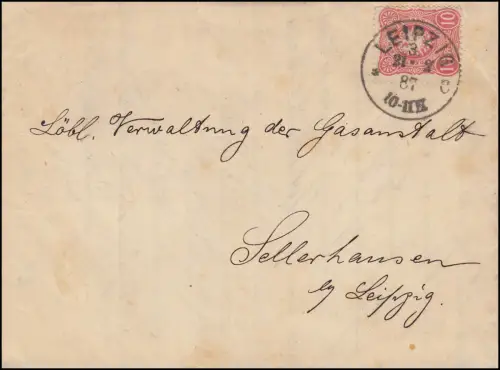 10
10
LEIPZIG
13
21 2
87
10-11 V.
* C
Löbl. Verwaltung der Gasanstalt
Sellerhausen
b/ Leipzig.